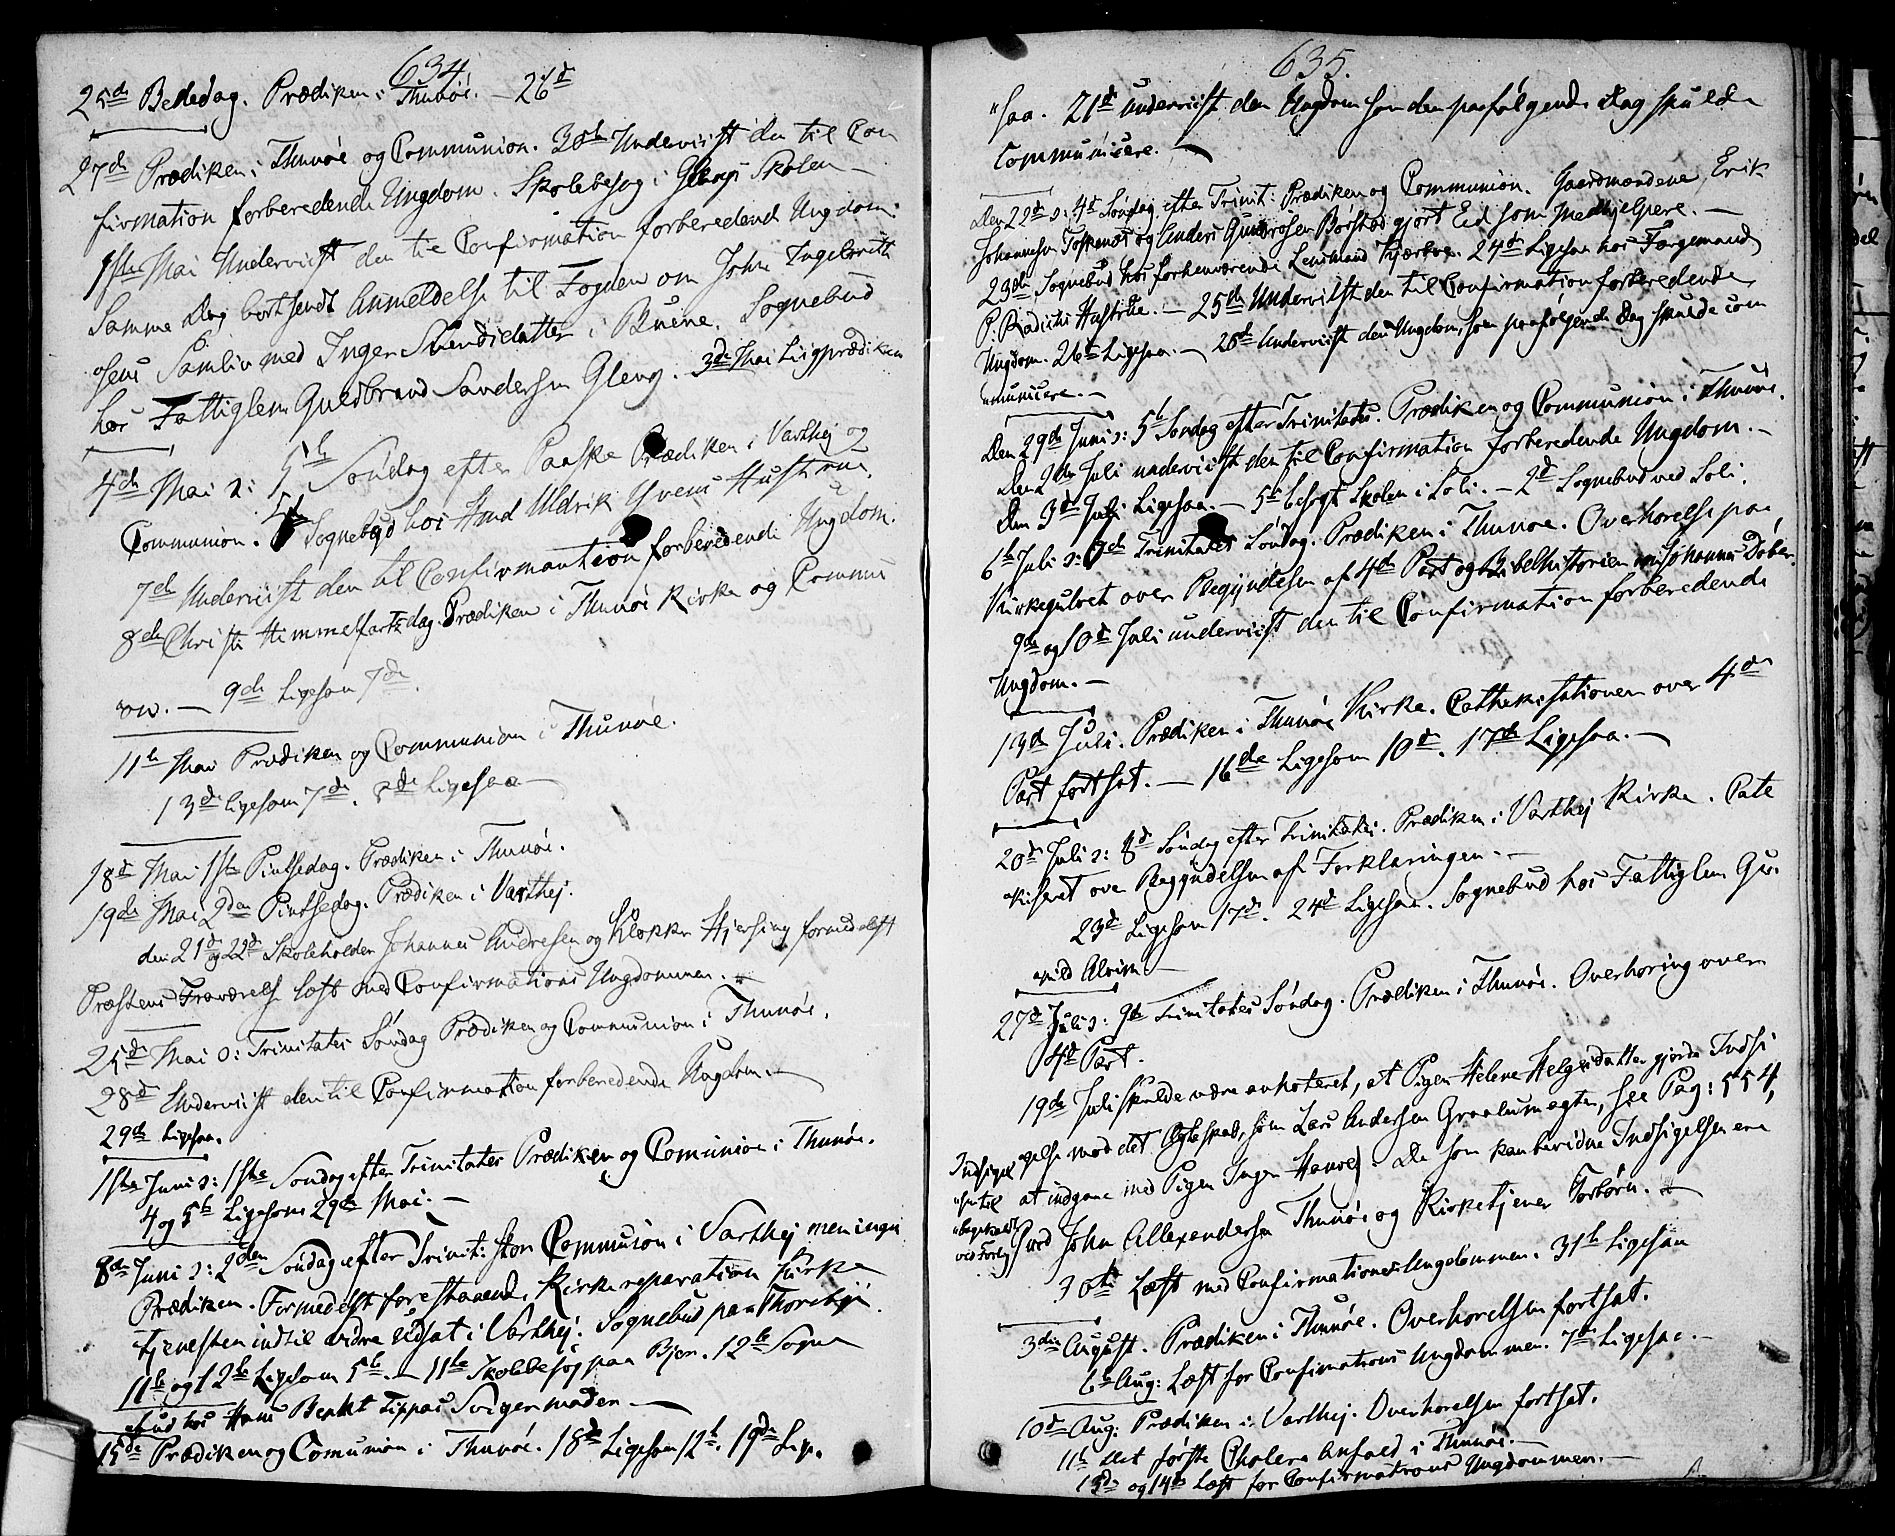 634.
25de Bededag. Prædiken i Thunøe. — 26d
27de Prædiken i Thunøe og Communion. 30te Underviist den til Con
firmation forberedende Ungdom. Skolebesøg i Glengs Skolen —
1ste Mai Underviist den til Confirmation forberedende Ungdom.
Samme Dag bortsendt Anmeldelse til Fogden om John Ingebreth
sens Samliv med Inger Svendsdatter i Buene. Sognebud
hos Fattiglem Guldbrand Sandersen Gleng. 3de Mai Liigprædiken
4de Mai ɔ: 5te Søndag efter Paaske Prædiken i Varthej og
Communion. 5te Sognebud hos Huusmand Uldrik Yvens Hustrue.
7de Underviist den til Confirmantion forberedende Ungdom.
8de Christi Himmelfartsdag. Prædiken i Thunøe Kirke og Commu
on. — 9de Ligesom 7de.
11te Mai Prædiken og Communion i Thunøe.
13de ligesom 7de. 8de Ligesaa —
18d Mai 1ste Pintsedag. Prædiken i Thunøe.
19de Mai 2den Pintsedag. Prædiken i Varthej.
den 21de og 22d Skoleholder Johannes Andresen og Klokker Hjersing formedelst
Præstens Fraværelse læst med Confirmations Ungdommen. —
25de Mai ɔ: Trinitatis Søndag Prædiken og Communion i Thunøe.
28d Underviist den til Confirmation forberedende Ungdom. —
29de Ligesaa.
1ste Juni ɔ: 1ste Søndag efter Trinitatis Prædiken og Comunion i Thunøe.
4 og 5te Ligesom 29de Mai. —
8de Juni ɔ: 2den Søndag efter Trinit: stor Communion i Varthej men ingen
Prædiken. Formedelst forestaaende Kirkereparation Kirke
tjenesten indtil videre udsat i Varthej. Sognebud paa Thorsbye.
11te og 12te Ligesom 5te. — 11te Skolebesøg paa Bjen. 12te Sogne
bud hos Hans Benkt Tippas Svigermoder. —
15de Prædiken og Comunion i Thunøe. 18de Ligesom 12te. 19de Lig.
635.
saa. 21de Underviist den Ungdom som den paafølgende Dag skulde
Communicere. —
Den 22de ɔ: 4de Søndag efter Trinit: Prædiken og Communion. Gaardmændene Erik
Johannesen Toskenæs og Anders Gulbrosen Borstad gjort Eed som Medhjelpere. —
23de Sognebud hos forhenværende Lensmand Kjærboe. 24de Ligesaa hos Færgemand
P. Radichs Hustrue. — 25de Underviist den til Confirmation forberedende
Ungdom. 26te Ligesaa. — 28de Underviist den Ungdom, som paafølgende Dag skulde com
municere. —
Den 29de Juni ɔ: 5te Søndag efter Trinitatis. Prædiken og Communion i Thunøe.
Den 2de Juli underviist den til Confirmation forberedende Ungdom. —
Den 3de Juli Ligesaa. — 5te besøgt Skolen i Soli. — 2d Sognebud ved Soli.
6te Juli ɔ: 6de Trinitatis Søndag. Prædiken i Thunøe. Overhørelse paa
Kirkegulvet over Begyndelsen af 4de Part og Bibelhistorien om Johannes Døber.
9de og 10de Juli underviist den til Confirmation forberedende
Ungdom. —
13de Juli. Prædiken i Thunøe Kirke. Cathekisationen over 4de
Part fortsat. — 16de Ligesom 10de. 17de Ligesaa. —
20de Juli ɔ: 8d Søndag efter Trinitatis. Prædiken i Varthej Kirke. Cate
kiseret over Begyndelsen af Forklaringen. —
23de Ligesom 17de. 24de Ligesaa. Sognebud hos Fattiglem Gu.
nild Alvim —
27de Juli ɔ: 9de Trinitatis Søndag. Prædiken i Thunøe. Overhøring over
4de Part.
19de Juli skulde være anhoteret, at Pigen Helene Helgesdatter gjorde Indsi
gelse mod det Ægteskab, som Lars Andersen Graalumegten, see Pag: 554,
Indsigel
sen til
bagekaldt
ved Forlig
at indgaae med Pigen Inger Hanses. De som kan bevidne Indsigelsen ere
Svend John Allexandersen Thunøe og Kirketjener Torbørn. —
30te Læst med Confirmations Ungdommen. 31te Ligesaa
3die August. Prædiken i Thunøe. Overhørelsen fortsat.
6te Aug: Læst for Confirmations Ungdommen. 7de Ligesaa. —
10de Aug: Prædiken i Varthej. Overhørelsen fortsat.
11te det første Cholera Anfald i Thunøe. —
13de og 14de Læst for Confirmations Ungdommen. —